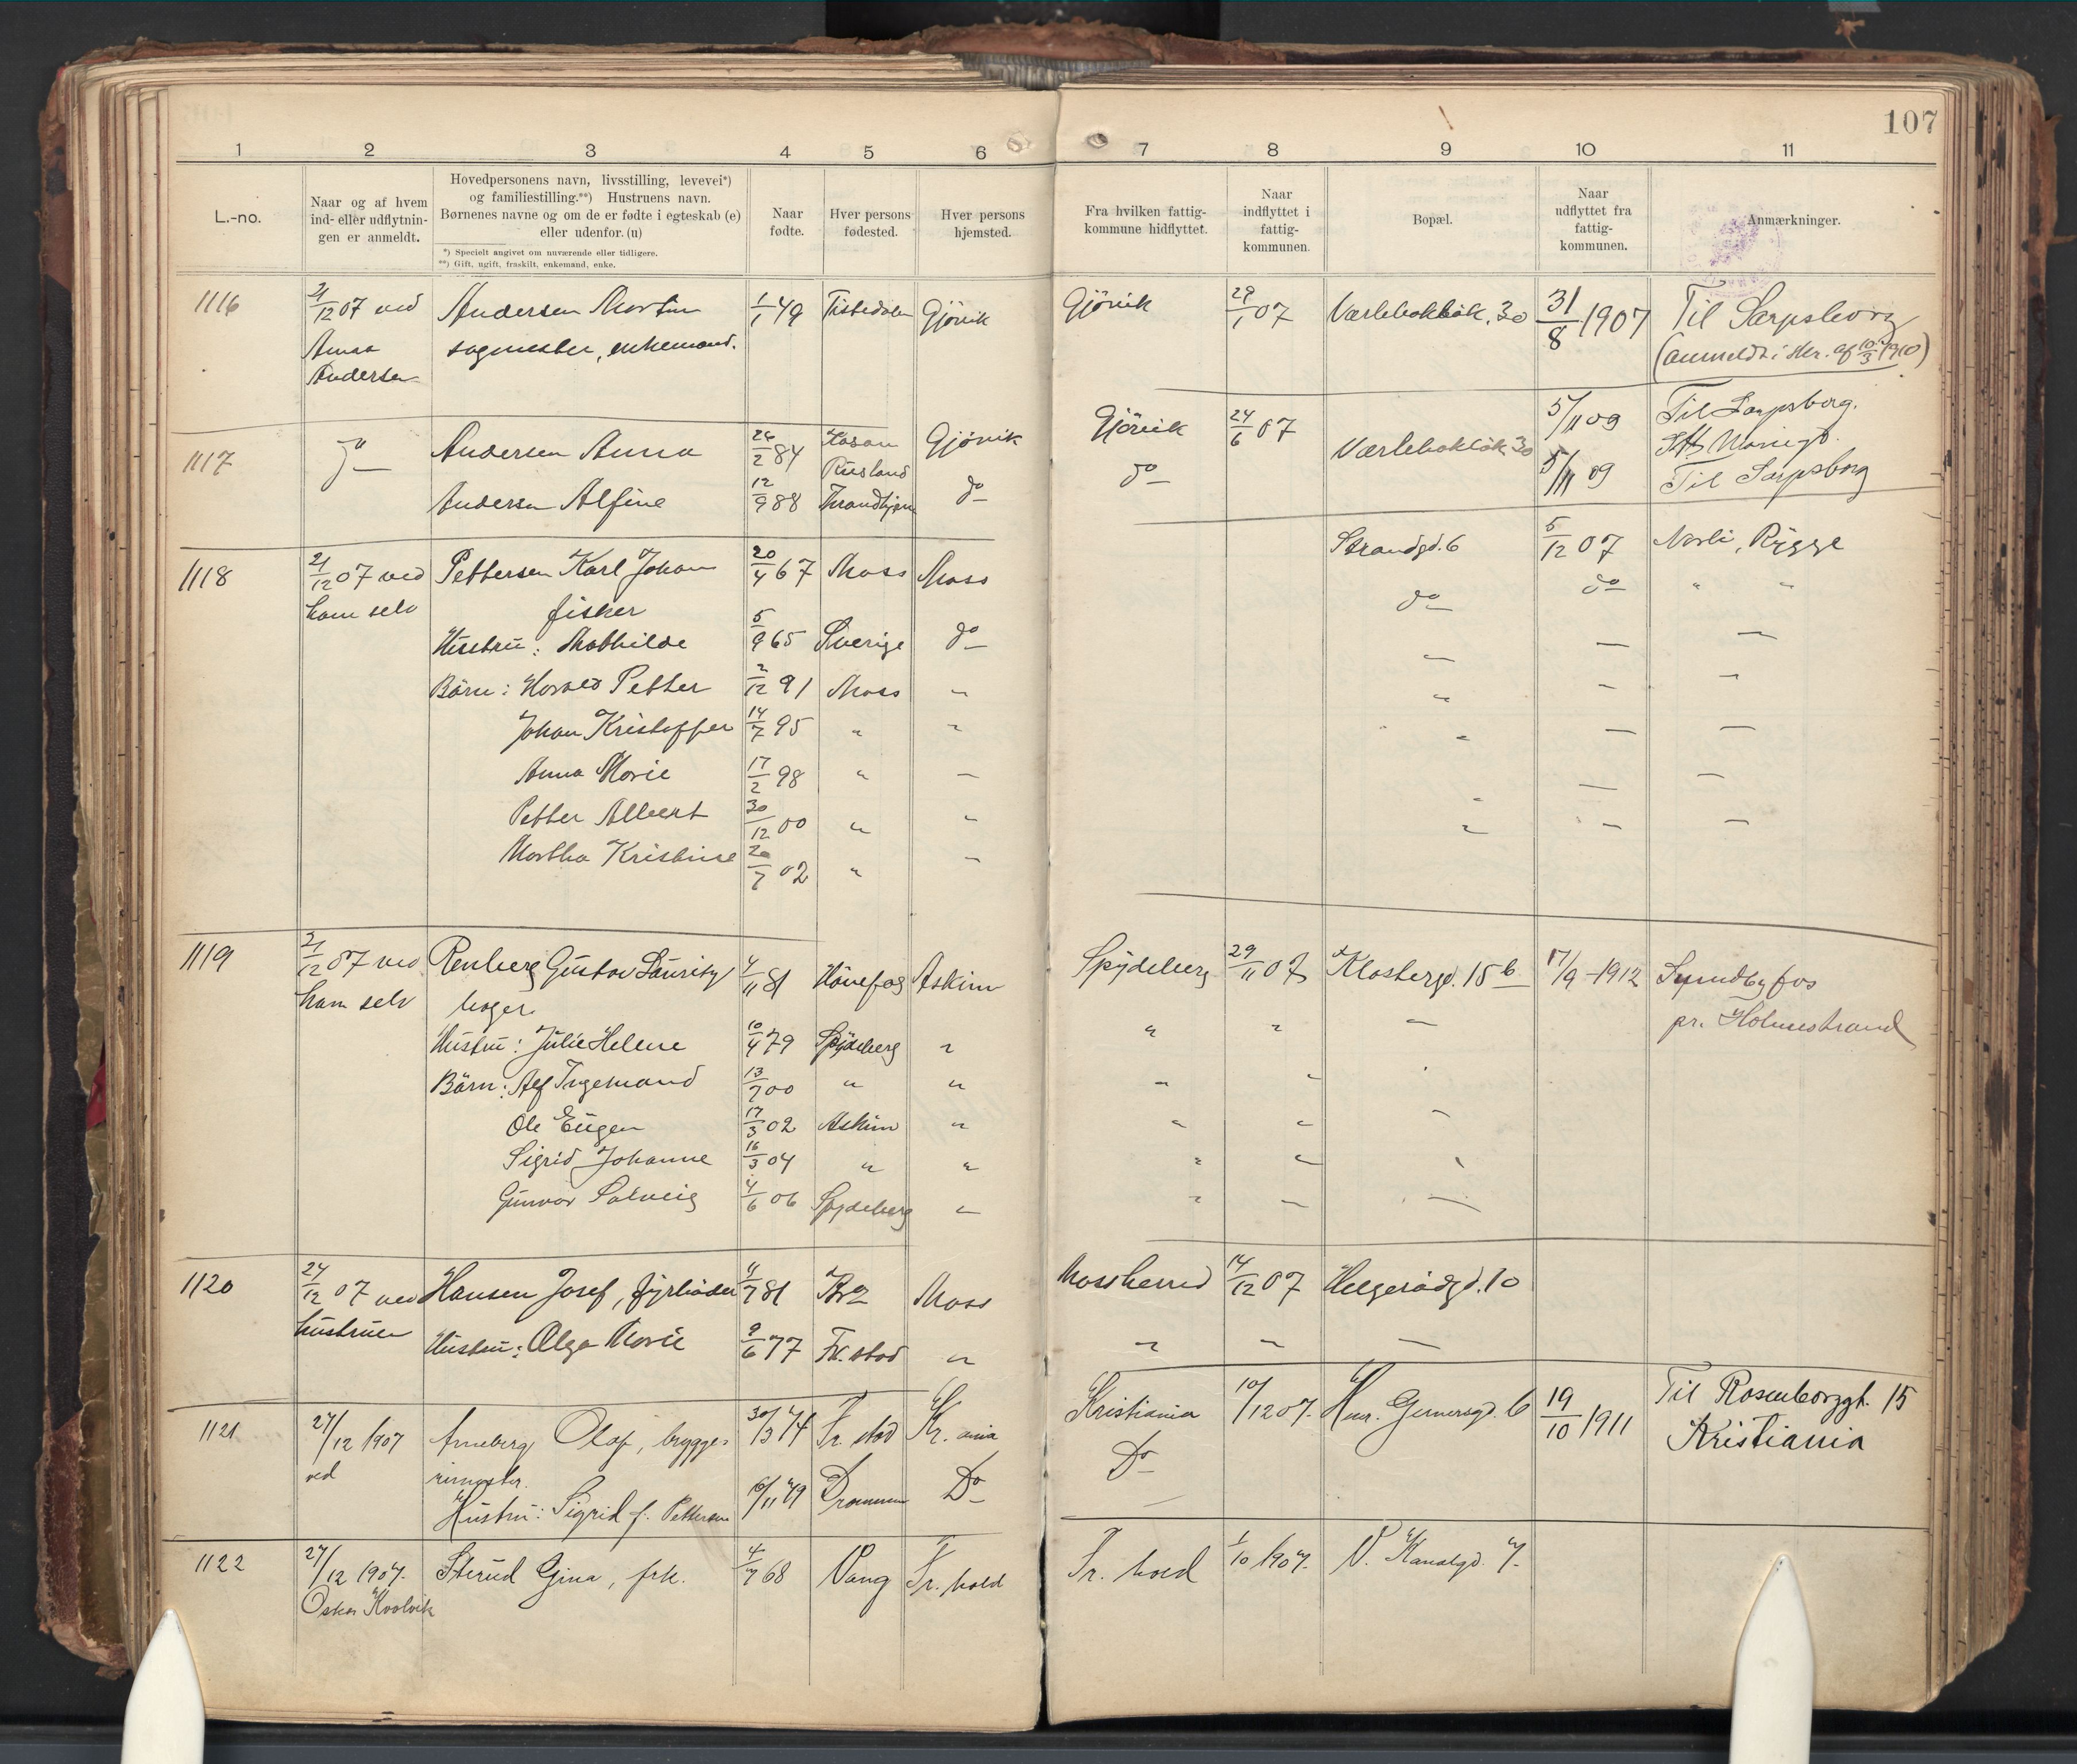 107
1 2 3 4 5 6 7 8 9 10 11
L.-no.
Naar og af hvem ind- eller udflytnin-gen er anmeldt.
Hovedpersonens navn, livsstilling, levevei*) og familiestilling.**) Hustruens navn. Børnenes navne og om de er fødte i egteskab (e) eller udenfor. (u)
*) Specielt angivet om nuværende eller tidligere.
**) Gift, ugift, fraskilt, enkemand, enke.
Naar fødte.
Hver persons fødested.
Hver persons hjemsted.
Fra hvilken fattig-kommune hidflyttet.
Naar indflyttet i fattig-kommunen.
Bopæl.
Naar udflyttet fra fattig-kommunen.
Anmærkninger.
1116 21/12 07 ved Andersen Martin 1/1 49 Tistedalen Gjövik Gjövik 29/1 07 Værlebakkök. 30 31/8 1907 Til Sarpsborg
Anna sagmester, enkemand. (anmeldt i skr. af 10/3 1910)
Andersen
1117 do Andersen Anna 26/2 84 Kasan Rusland Gjövik Gjövik 24/6 07 Værlebakkök 30 5/11 09 Til Sarpsborg.
Andersen Alfine 12/9 88 Trondhjem do do 5/11 09 Til Sarpsborg
1118 21/12 07 ved Pettersen Karl Johan 20/4 67 Moss Moss Strandgd. 6 5/12 07 Norli, Rygge
ham selv fisker do do " "
Hustru: Mathilde 5/9 65 Sverige do — — —
Börn: Harald Petter 2/12 91 Moss " " — —
Johan Kristoffer 14/7 95 " " " — —
Anna Marie 17/2 98 " — " — —
Petter Albert 30/12 00 " " " — —
Martha Kristine 20/7 02 " —
1119 21/12 07 ved Renberg Gustav Lauritz 4/11 81 Hönefos Askim Spydeberg 29/11 07 Klostergd. 15 b 17/9 - 1912 Sundbyfos
ham selv bager pr. Holmestrand
Hustru: Julie Helene 10/4 79 Spydeberg " " " —
Börn: Alf Ingemand 13/7 00 " " " "
Ole Eugen 17/3 02 Askim " " " —
Sigrid Johanne 16/3 04 " " " "
Gunvor Solveig 4/6 06 Spydeberg " " — —
1120 24/12 07 ved Hansen Josef, fyrböder 4/7 81 Moss Mossherred 14/12 07 Helgerødgd. 10
hustruen Hustru: Olga Marie 9/6 77 Fr.stad " " " —
1121 27/12 1907 Arneberg Olaf, brygge- 30/3 74 Fr. stad Kr. ania Kristiania 10/12 07. Henr. Gernersgd. 6 19/10 1911 Til Rosenborggt. 15
ved rimester. Do Kristiania
Hustru: Sigrid f. Pettersen 16/11 79 Drammen Do
1122 27/12 1907. Sterud Gina, frk. 4/7 68 Vang Fr. hald Fr. hald 1/10 1907. V. Kanalgd. 7.
Oskar Kvalvik